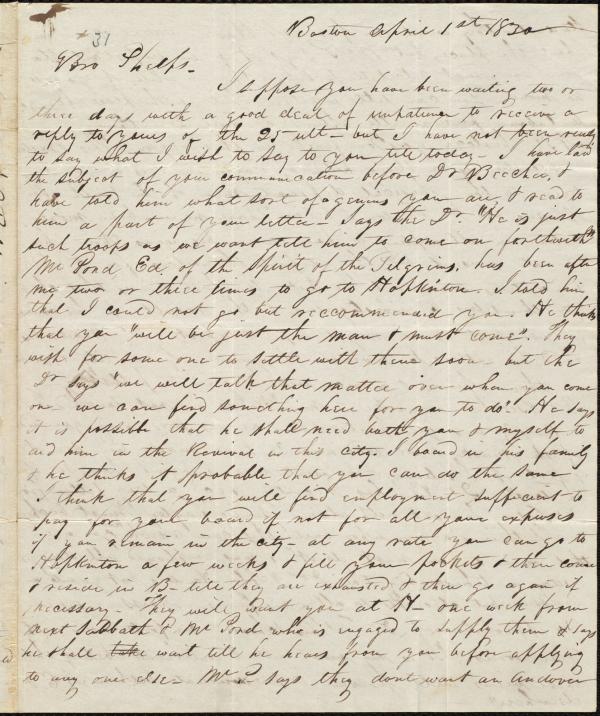 31
Boston April 1st 1830
Bro Phelps.
I suppose you have been waiting two or
three days with a good deal of impatience to receive a
reply to yours of the 25 ult - but I have not been ready
to say what I wish to say to you till today - I have laid
the subject of your communication before Dr Beecher, &
have told him what sort of a genius you are, & read to
him a part of your letter - Says the Dr. "He is just
such troops as we want tell him to come on forthwith"
Mr Pond, Ed. of th Spirit of the Pilgrims, has been after
me two or three times to go to Hopkinton. I told him
that I could not go but reccommended you. He thinks
that you "will be just the man & must come". They
wish for some one to settle with them soon - but the
Dr says "we will talk that matter over when you come
on - we can find something here for you to do". He says
it is possible that he shall need both you & myself to
aid him in the Revival in this city. I board in his family
& he thinks it probable that you can do the same
I think that you will find employment sufficient to
pay for your board if not for all your expenses
if you remain in the city - at any rate you can go to
Hopkinton a few weeks & fill your pockets & then come
& reside in B- till they are exhausted & then go again if
necessary - They will want you at H- one week from
next Sabbath & Mr Pond who is engaged to supply them & says
he shall take wait till he hears from you before applying
to any one else - Mr P says they dont want an Andover